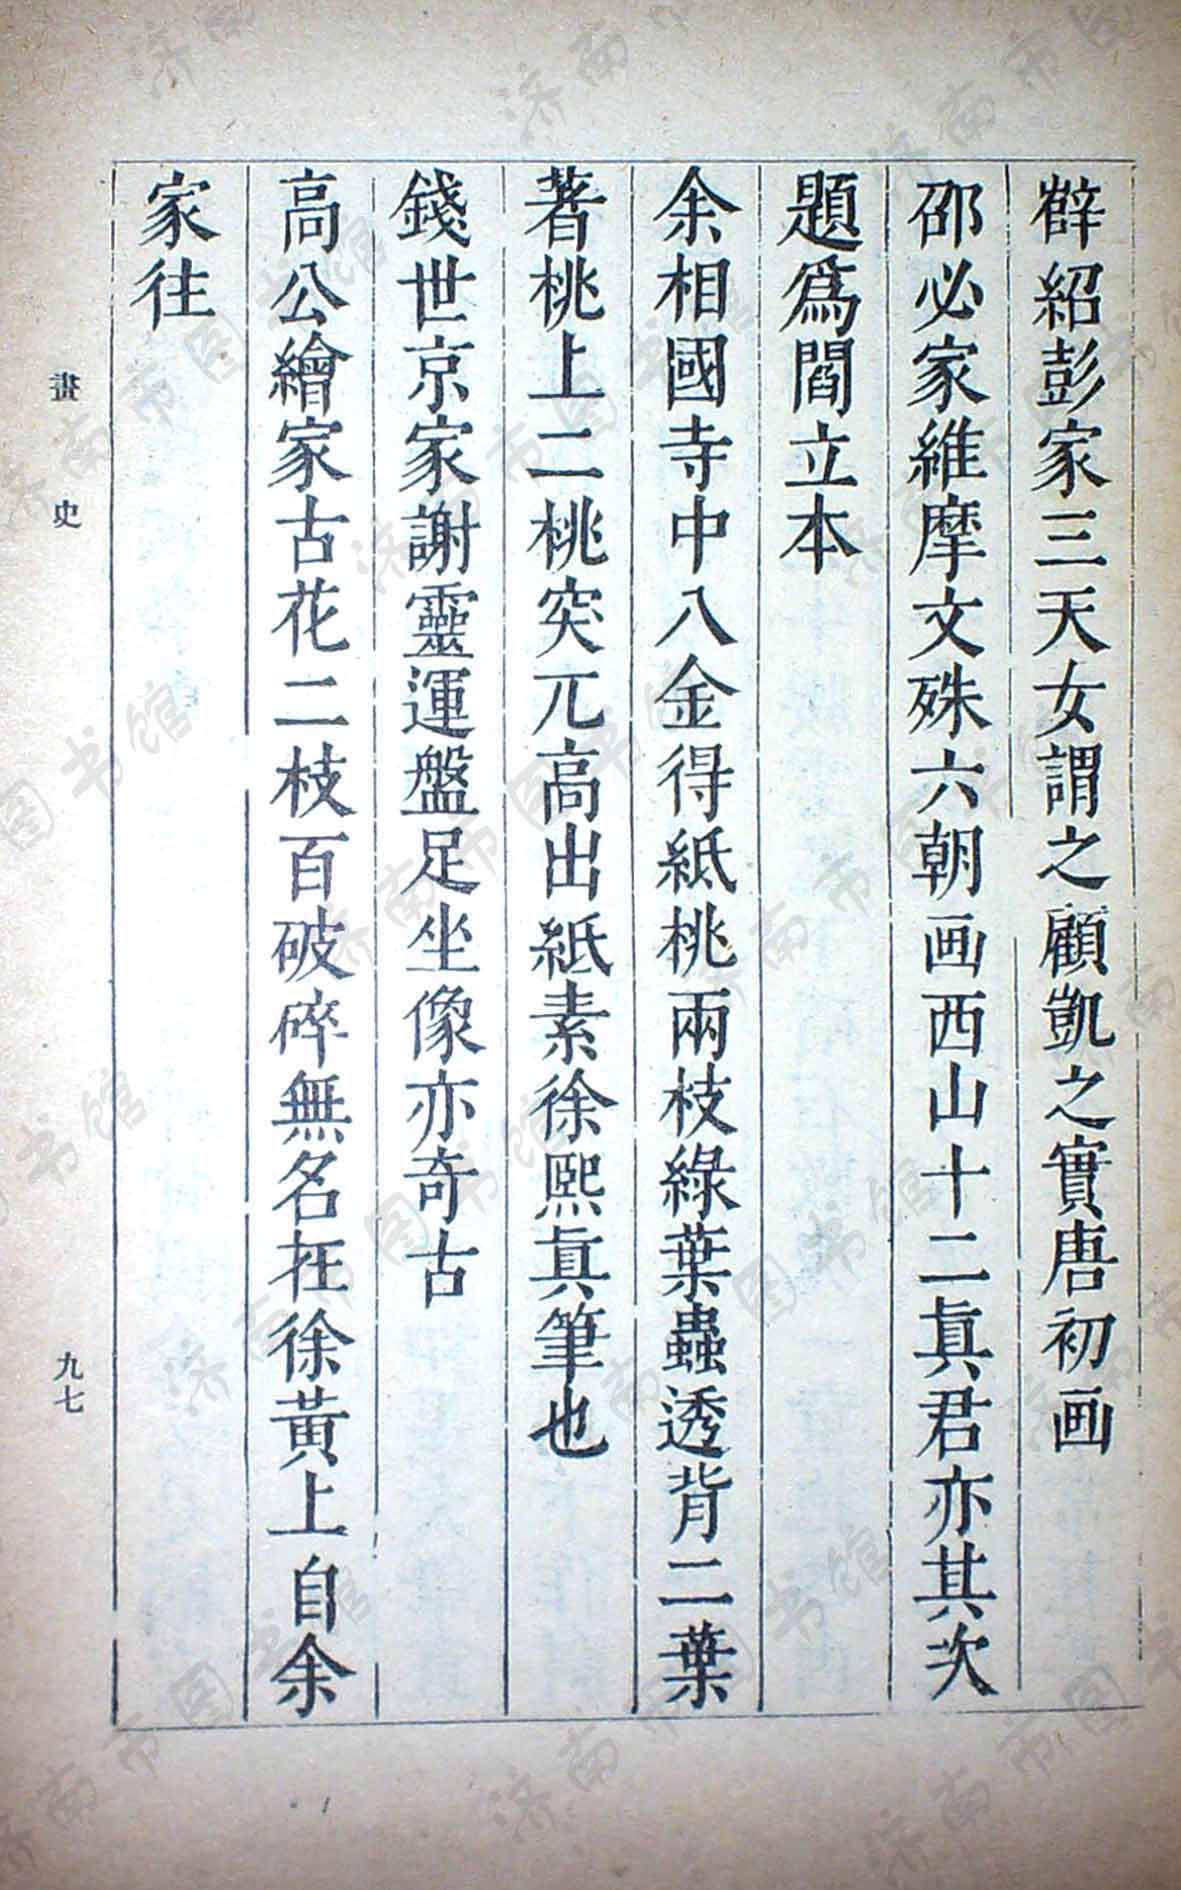 薛紹彭家三天女謂之顧凱之實唐初画
邵必家維摩文殊六朝画西山十二眞君亦其次
題爲閻立本
余相國寺中八金得紙桃兩枝綠葉蟲透背二葉
著桃上二桃突兀高出紙素徐熙眞筆也
錢世京家謝靈運盤足坐像亦奇古
高公繪家古花二枝百破碎無名在徐黃上自余
家往
畫史
九七
济南市图书馆